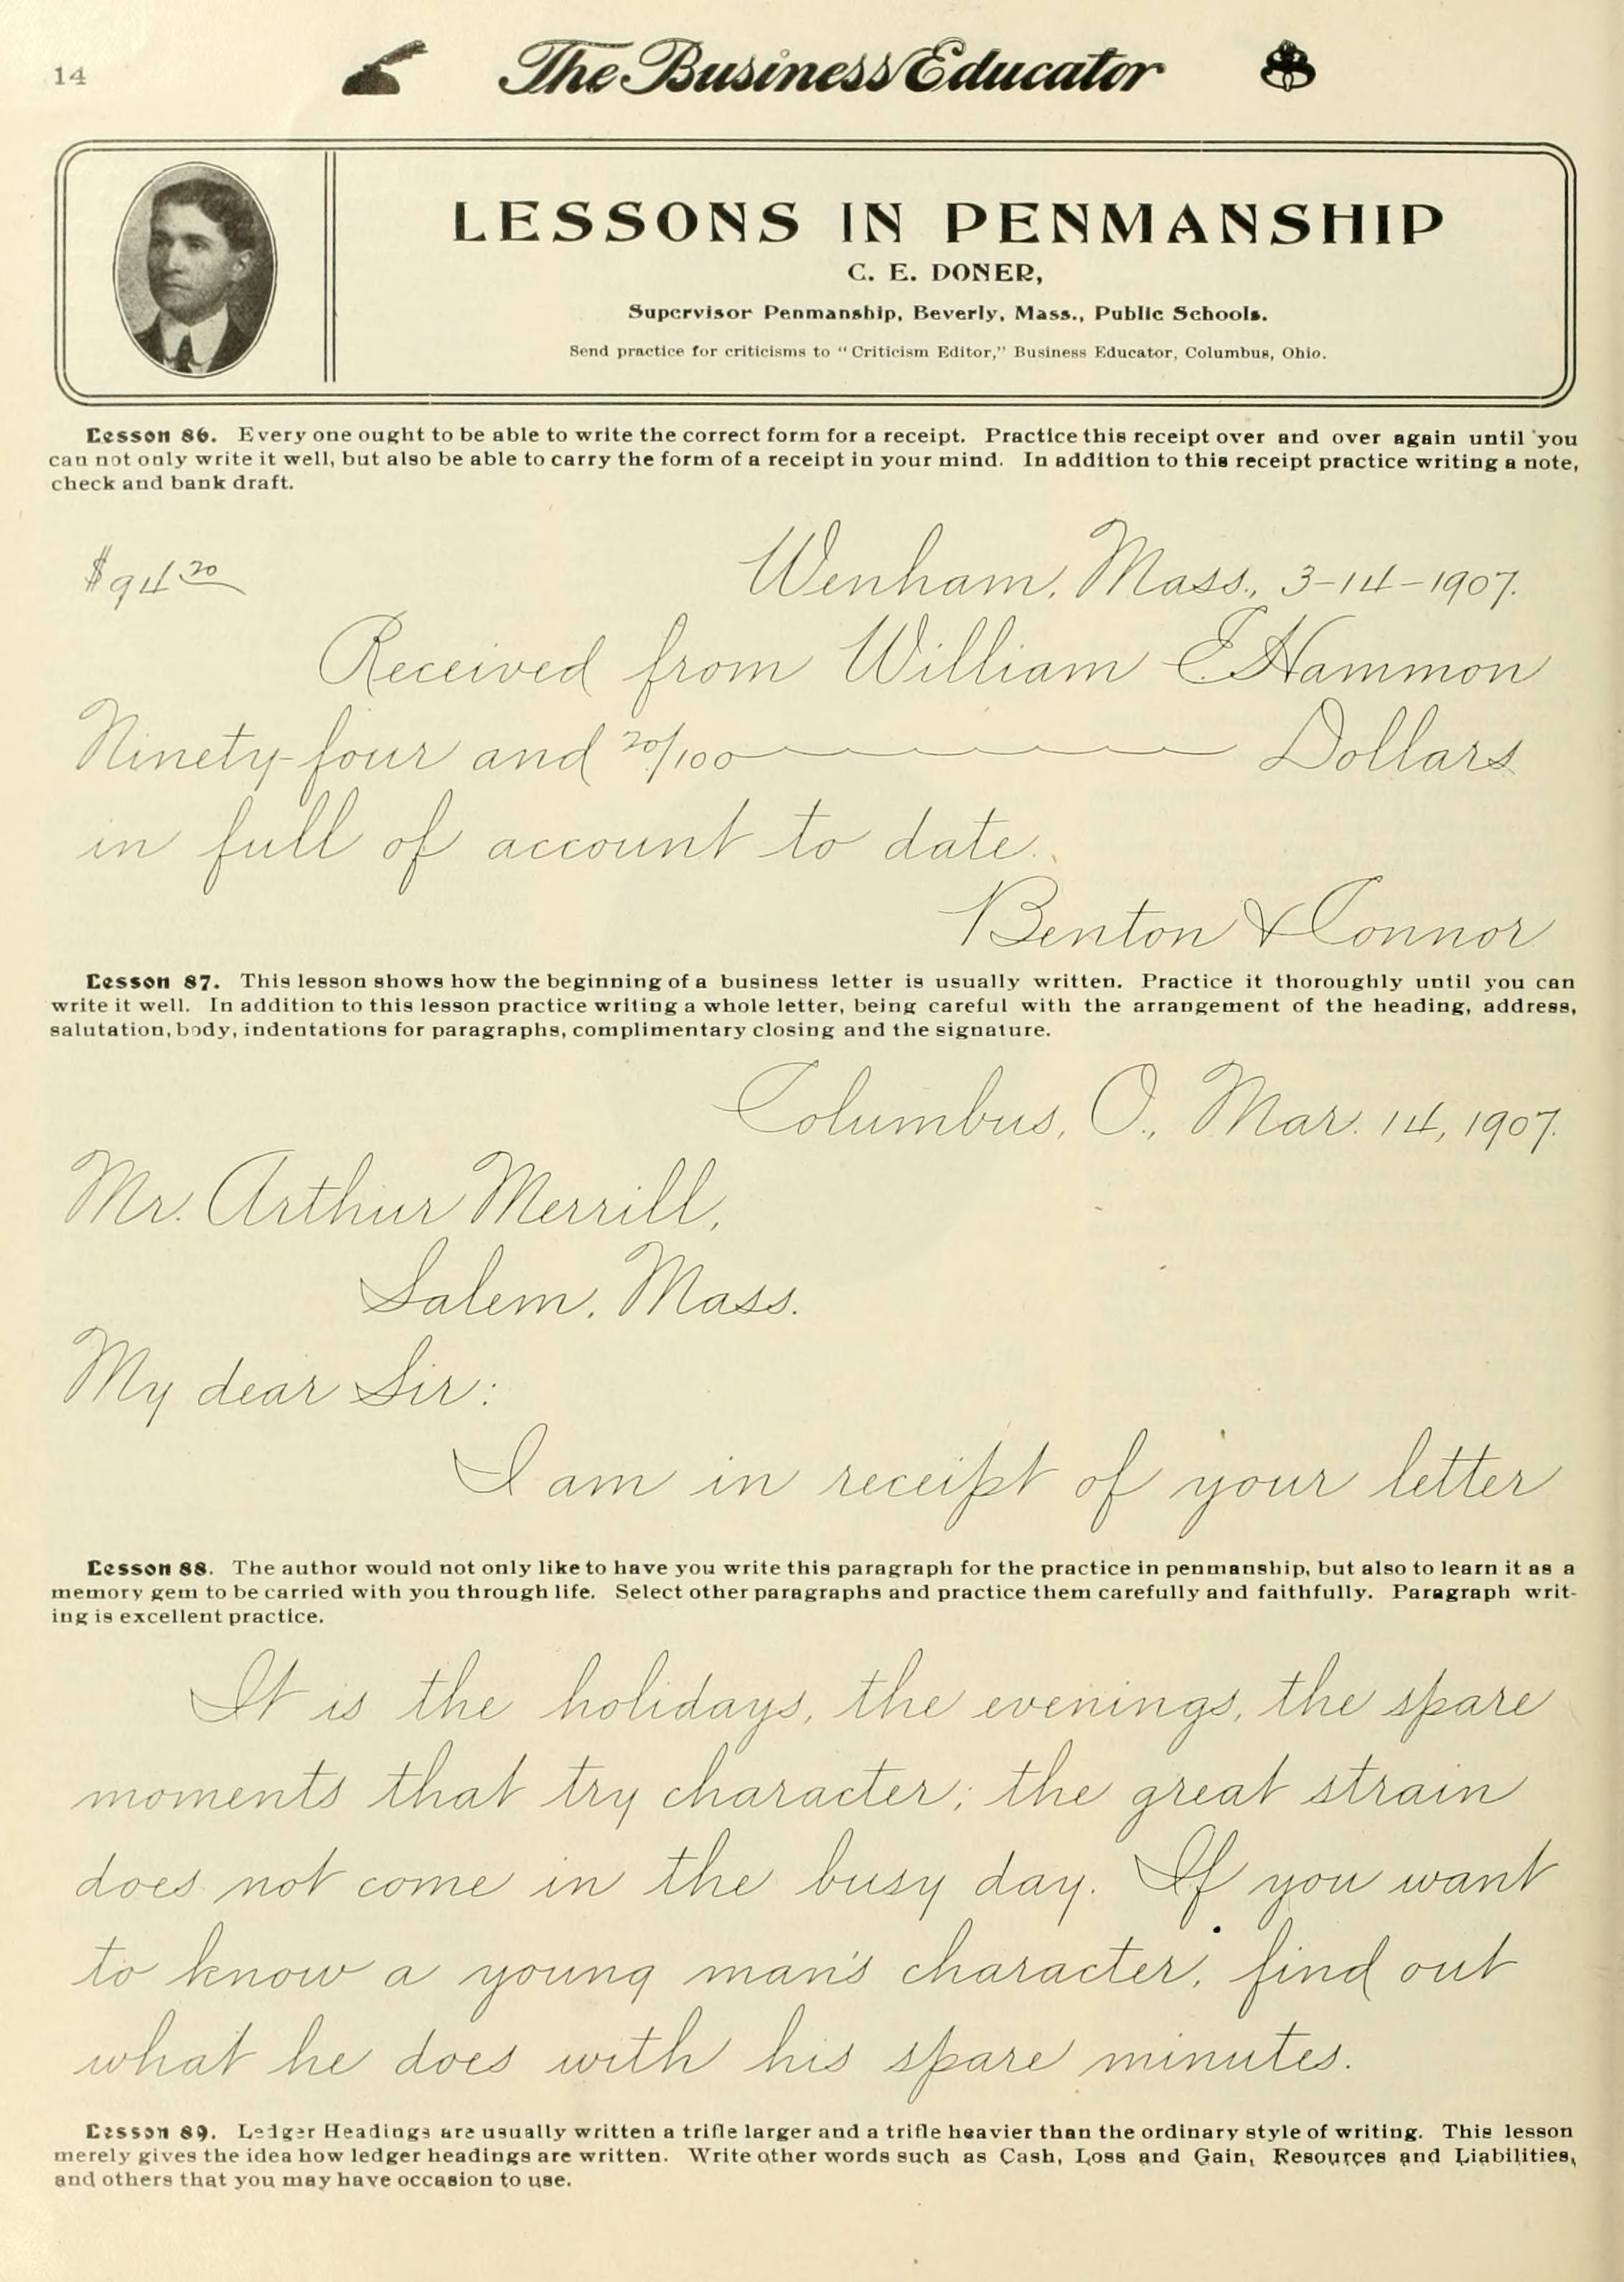 14
The Business Educator
LESSONS IN PENMANSHIP
C. E. DONER,
Supervisor Penmanship, Beverly, Mass., Public Schools.
Send practice for criticisms to “Criticism Editor,” Business Educator, Columbus, Ohio.
Lesson 86. Every one ought to be able to write the correct form for a receipt. Practice this receipt over and over again until you
can not only write it well, but also be able to carry the form of a receipt in your mind. In addition to this receipt practice writing a note,
check and bank draft.
$94 20 Wenham, Mass., 3-14-1907.
Received from William E. Hammon
Ninety-four and 20/100 Dollars
in full of account to date.
Benton & Connor
Lesson 87. This lesson shows how the beginning of a business letter is usually written. Practice it thoroughly until you can
write it well. In addition to this lesson practice writing a whole letter, being careful with the arrangement of the heading, address,
salutation, body, indentations for paragraphs, complimentary closing and the signature.
Columbus, O., Mar. 14, 1907.
Mr. Arthur Merrill,
Salem, Mass.
My dear Sir:
I am in receipt of your letter
Lesson 88. The author would not only like to have you write this paragraph for the practice in penmanship, but also to learn it as a
memory gem to be carried with you through life. Select other paragraphs and practice them carefully and faithfully. Paragraph writ-
ing is excellent practice.
It is the holidays, the evenings, the spare
moments that try character; the great strain
does not come in the busy day. If you want
to know a young man's character, find out
what he does with his spare minutes.
Lesson 89. Ledger Headings are usually written a trifle larger and a trifle heavier than the ordinary style of writing. This lesson
merely gives the idea how ledger headings are written. Write other words such as Cash, Loss and Gain, Resources and Liabilities,
and others that you may have occasion to use.